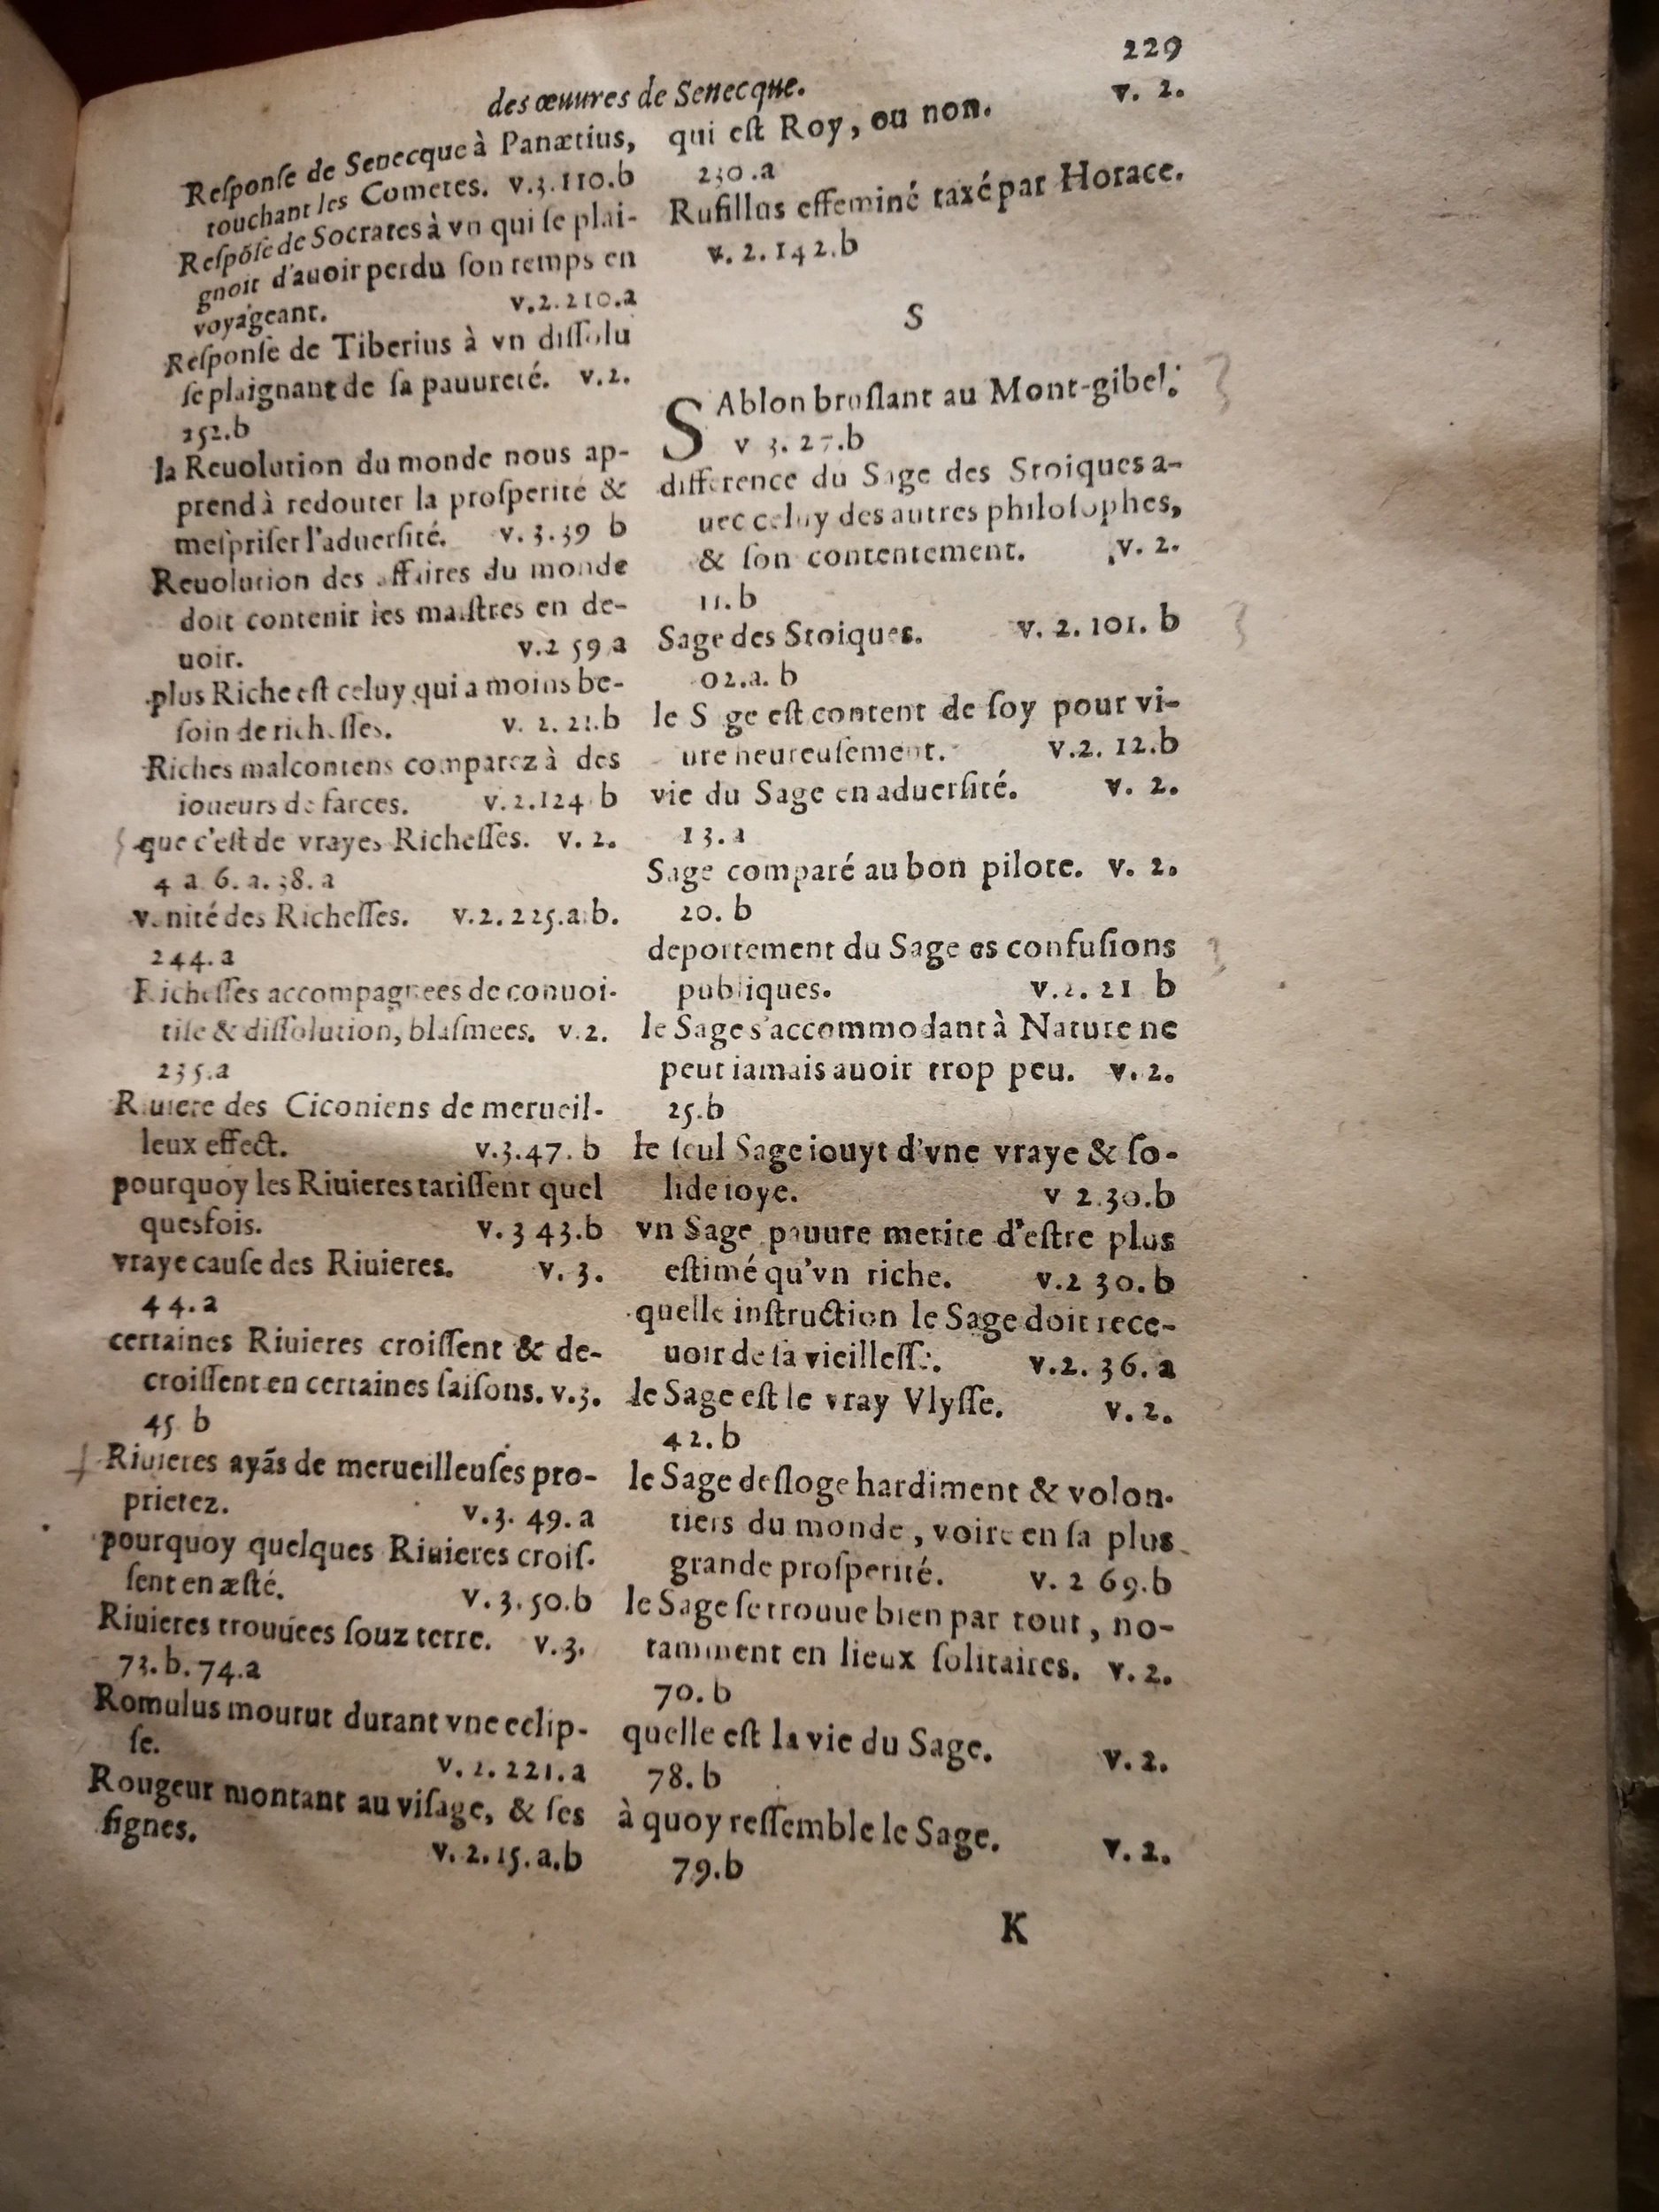 229
des œuures de Senecque.
Reſponſe de Senecque à Panætius,
touchant les Cometes. v.3.110.b
Reſpõſe de Socrates à vn qui ſe plai-
gnoit d'auoir perdu ſon temps en
voyageant. v.2.210.a
Reſponſe de Tiberius à vn diſſolu
ſe plaignant de ſa pauureté. v.2.
252.b
la Reuolution du monde nous ap-
prend à redouter la proſperité &
meſpriſer l'aduerſité. v.3.39 b
Reuolution des affaires du monde
doit contenir les maiſtres en de-
uoir. v.2 59 a
plus Riche eſt celuy qui a moins be-
ſoin de richeſſes. v. 2. 21.b
Riches malcontens comparez à des
ioueurs de farces. v.2.124 b
que c'eſt de vrayes Richeſſes. v. 2.
4 a. 6. a. 38. a
vanité des Richeſſes. v.2. 225.a.b.
244.a
Richeſſes accompagnees de conuoi-
tiſe & diſſolution, blaſmees. v.2.
235.a
Riuiere des Ciconiens de merueil-
leux effect. v.3.47. b
pourquoy les Riuieres tariſſent quel
quesfois. v. 3 43.b
vraye cauſe des Riuieres. v. 3.
44.a
certaines Riuieres croiſſent & de-
croiſſent en certaines ſaiſons. v.3.
45 b
Riuieres ayãs de merueilleuſes pro-
prietez. v.3. 49. a
pourquoy quelques Riuieres croiſ-
ſent en æſté. v.3.50.b
Riuieres trouuées ſouz terre. v.3.
73.b.74.a
Romulus mourut durant vne eclip-
ſe. v. 2. 221.a
Rougeur montant au viſage, & ſes
ſignes. v. 2. 15. a.b
qui eſt Roy, ou non. v. 2.
230.a
Rufillus effeminé taxé par Horace.
v. 2. 142.b
S
SAblon bruſlant au Mont-gibel.
v 3. 27.b
difference du Sage des Stoiques a-
uec celuy des autres philoſophes,
& ſon contentement. v. 2.
11. b
Sage des Stoiques. v. 2. 101. b
02.a. b
le S ge eſt content de ſoy pour vi-
ure heureuſement. v.2. 12.b
vie du Sage en aduerſité. v. 2.
13.a
Sage comparé au bon pilote. v. 2.
20. b
deportement du Sage es confuſions
publiques. v.2. 21 b
le Sage s'accommodant à Nature ne
peut iamais auoir trop peu. v. 2.
25.b
le ſeul Sage iouyt d'vne vraye & ſo-
lide ioye. v 2.30.b
vn Sage pauure merite d'eſtre plus
eſtimé qu'vn riche. v.2 30. b
quelle inſtruction le Sage doit rece-
uoir de ſa vieilleſſe. v.2. 36. a
le Sage eſt le vray Vlyſſe. v. 2.
42. b
le Sage deſloge hardiment & volon-
tiers du monde, voire en ſa plus
grande proſperité. v. 2 69.b
le Sage ſe trouue bien par tout, no-
tamment en lieux ſolitaires. v. 2.
70. b
quelle eſt la vie du Sage. v. 2.
78. b
à quoy reſſemble le Sage. v. 2.
79.b
K